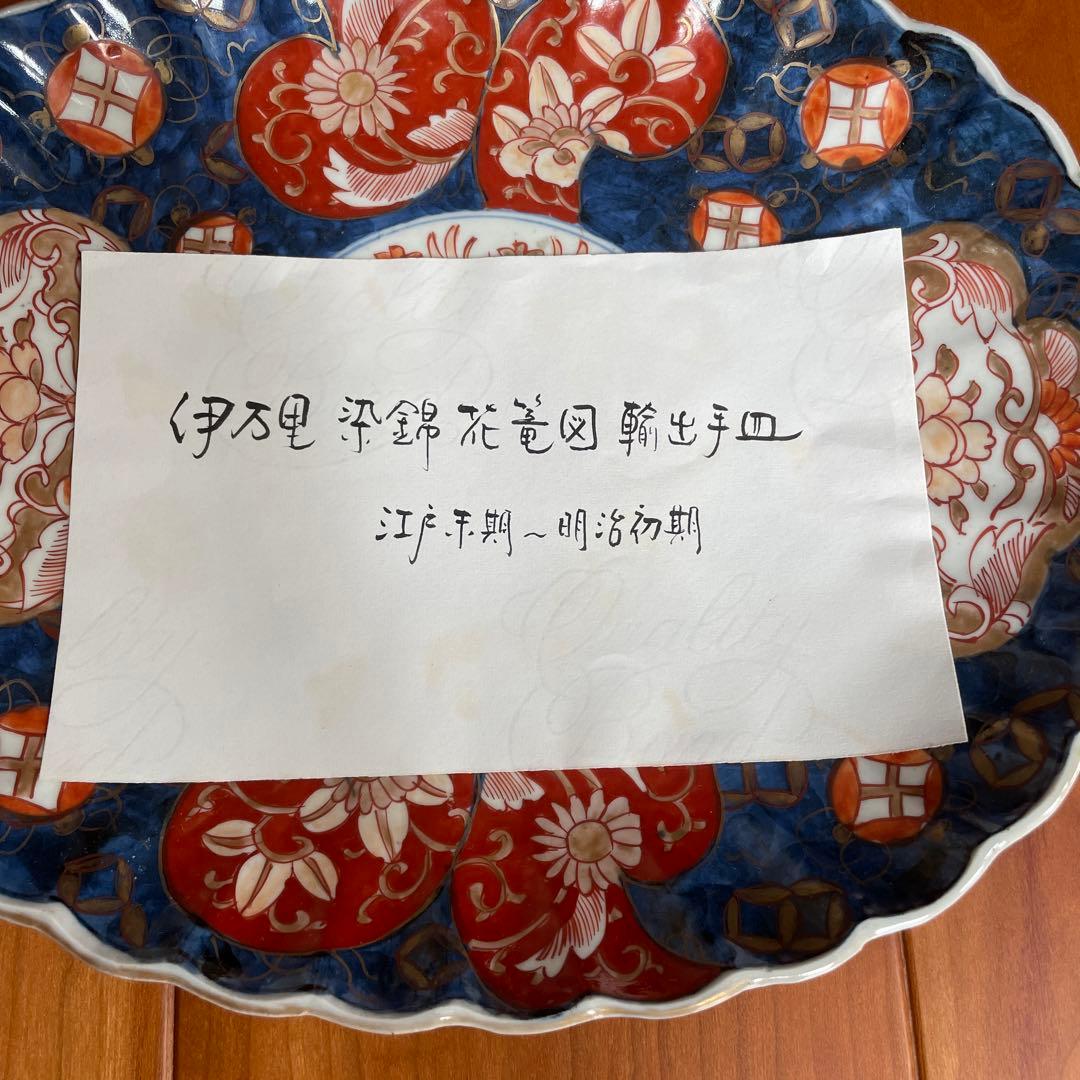 伊万里 染錦 花篭図 輸出手皿
江戸末期〜明治初期
Quality